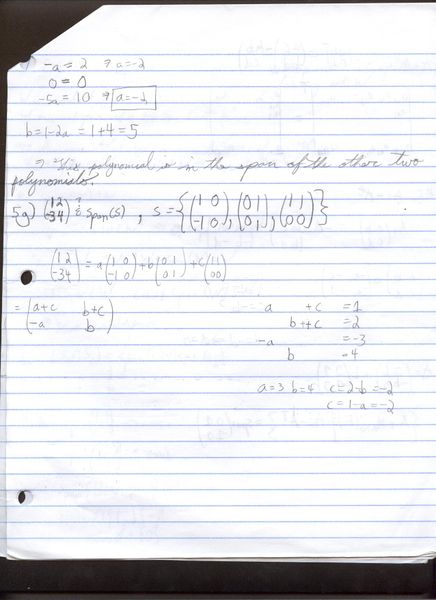 -a = 2 ⇒ a=-2
0 = 0
-5a = 10 ⇒ a=-2
b=1-2a = 1+4=5
⇒ This polynomial is in the span of the other two
polynomials.
5g) (1 2 -3 4) ?∈ Span(S) , S = { (1 0 -1 0), (0 1 0 1), (1 1 0 0) }
(1 2 -3 4) = a(1 0 -1 0) + b(0 1 0 1) + c(1 1 0 0)
= (a+c b+c -a b)
a +c =1
b +c =2
-a =-3
b =4
a=3 b=4 c=2-b=-2
c=1-a=-2